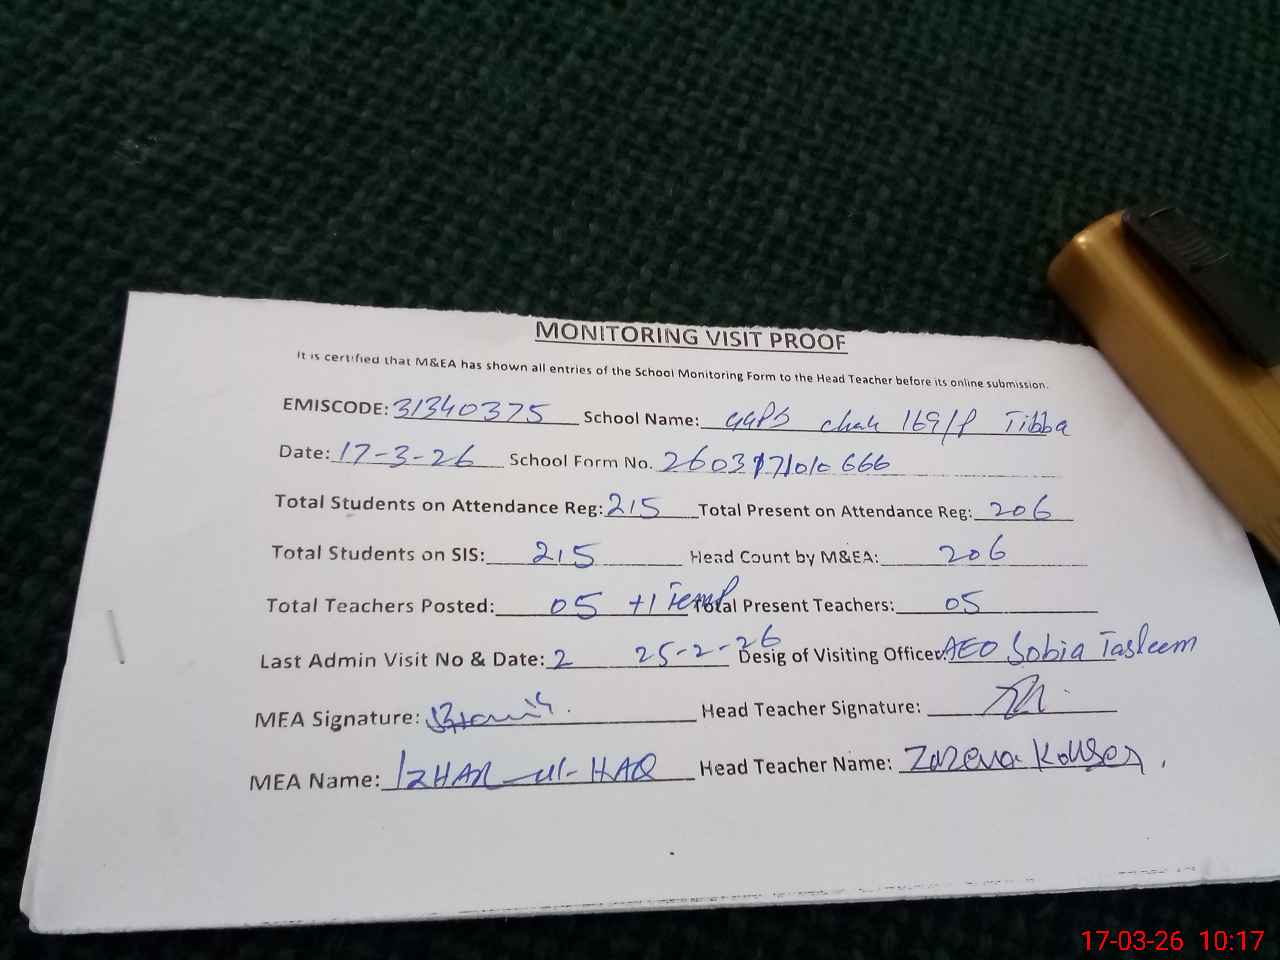 MONITORING VISIT PROOF
It is certified that M&EA has shown all entries of the School Monitoring Form to the Head Teacher before its online submission.
EMISCODE: 31340375 School Name: GGPS chak 169/P Tibba
Date: 17-3-26 School Form No. 2603171010666
Total Students on Attendance Reg: 215 Total Present on Attendance Reg: 206
Total Students on SIS: 215 Head Count by M&EA: 206
Total Teachers Posted: 05 +1 Temp Total Present Teachers: 05
Last Admin Visit No & Date: 2 25-2-26 Desig of Visiting Officer: AEO Sobia Tasleem
MEA Signature: Head Teacher Signature:
MEA Name: IZHAR-ul-HAQ Head Teacher Name: Kouser
17-03-26 10:17